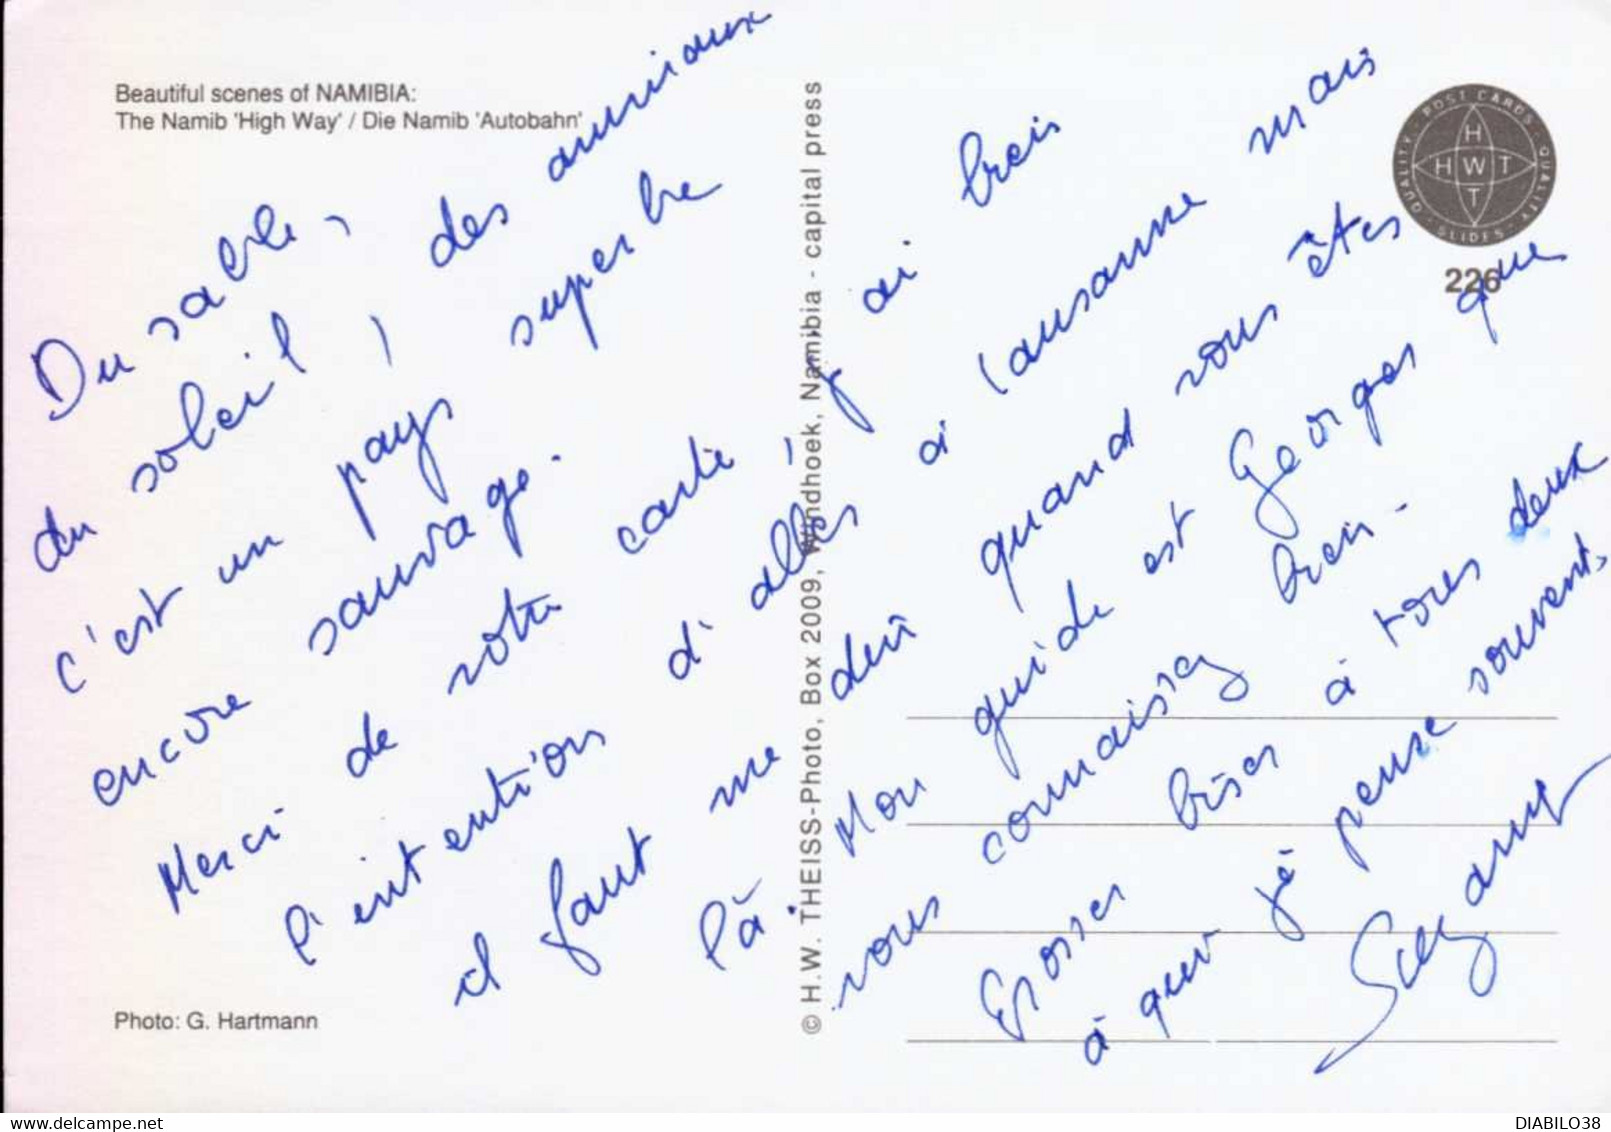 Beautiful scenes of NAMIBIA:
The Namib 'High Way' / Die Namib 'Autobahn'
Du sable, des animaux
du soleil, superbe
c'est un pays
encore sauvage.
Merci de votre carte, j'ai bien
l'intention d'aller à Lausanne mais
il faut me dire quand vous êtes
là. Mon guide est Georges que
vous connaissez bien.
Grosses bises à tous deux
à qui je pense souvent.
Photo: G. Hartmann
© H.W. THEISS-Photo, Box 2009, Windhoek, Namibia - capital press
QUALITY · POST CARDS · QUALITY · SLIDES ·
H
HWT
T
226
DIABILO38